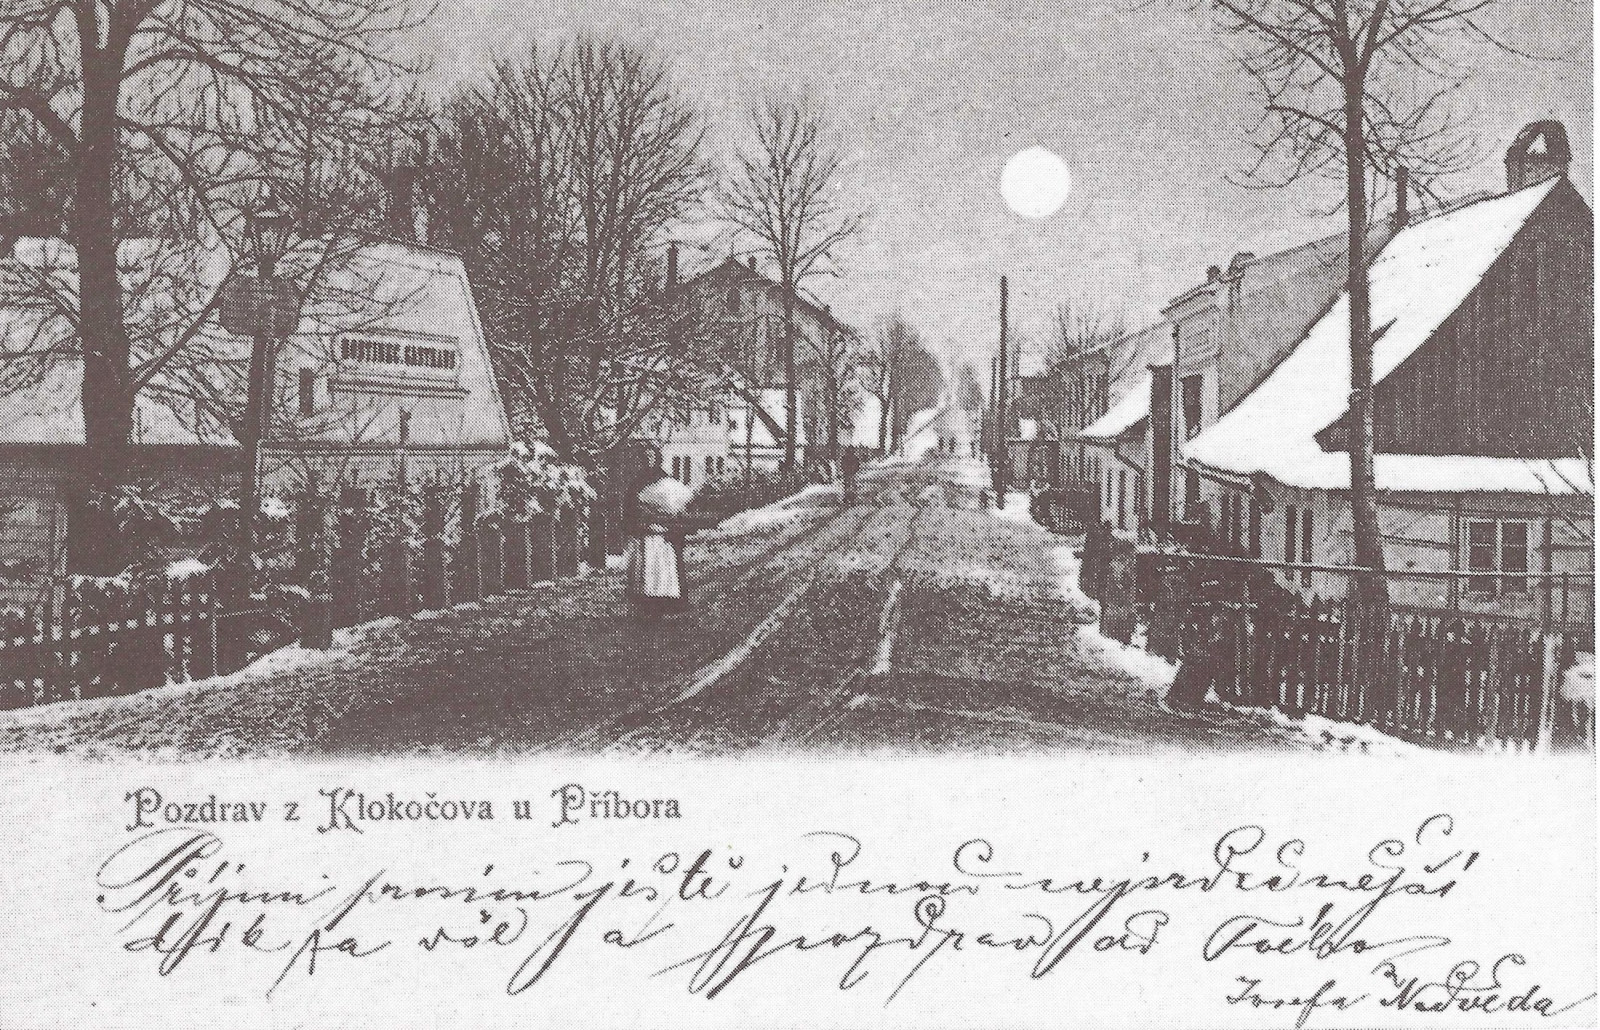 HOSTINEC
Pozdrav z Klokočova u Příbora
Přijmi prosím ještě jednou nejsrdečnější
dík za vše a pozdrav od Tvého
Josefa Nedvěda